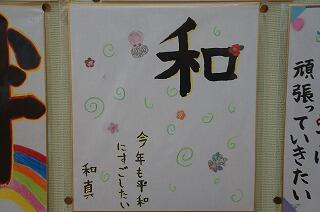 和
今年も平和
にすごしたい
和真
頑張って
いきたい